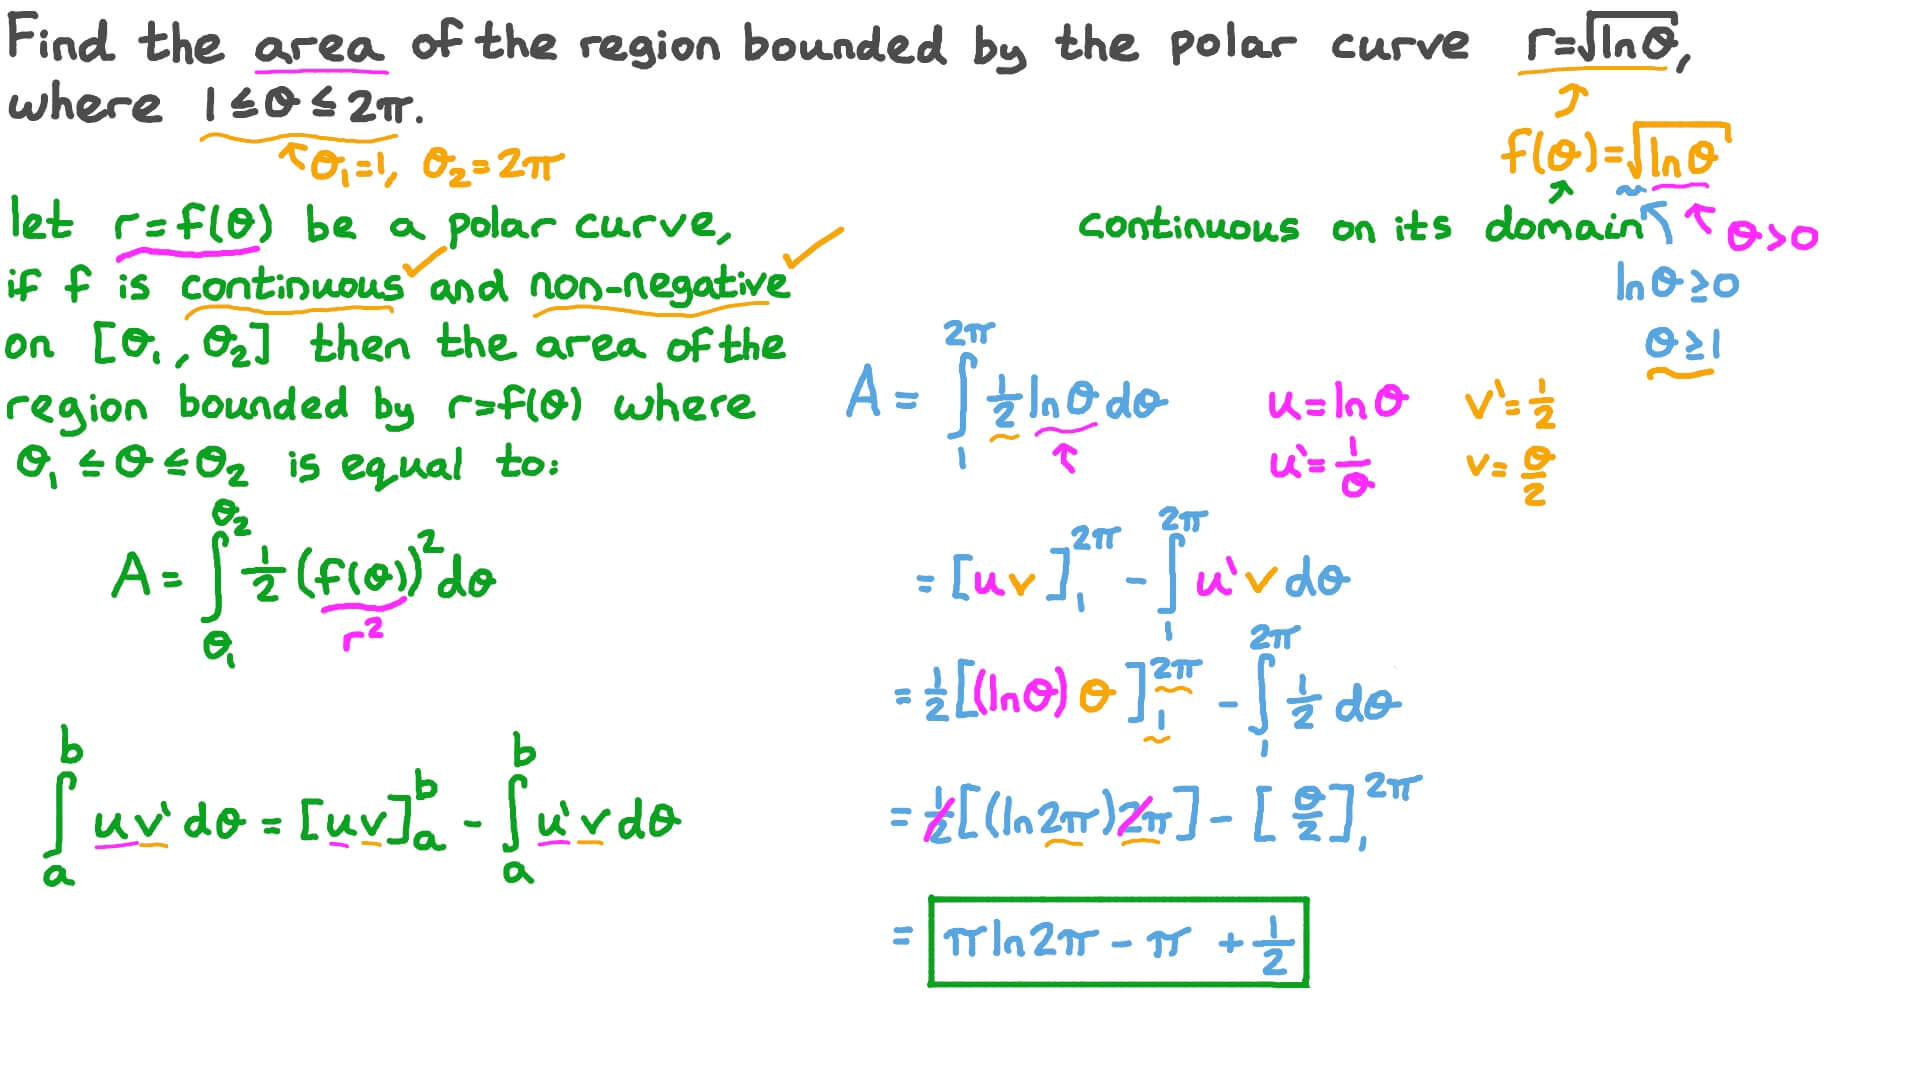 Find the area of the region bounded by the polar curve r=√lnθ,
where 1≤θ≤2π.
θ₁=1, θ₂=2π
f(θ)=√lnθ
let r=f(θ) be a polar curve,
if f is continuous and non-negative
on [θ₁,θ₂] then the area of the
region bounded by r=f(θ) where
θ₁≤θ≤θ₂ is equal to:
A=∫_θ₁^θ₂ 1/2 (f(θ))² dθ
r²
∫_a^b uv' dθ = [uv]_a^b - ∫_a^b u'v dθ
continuous on its domain
θ>0
lnθ≥0
θ≥1
A=∫_1^2π 1/2 lnθ dθ
u=lnθ v'=1/2
u'=1/θ v=θ/2
=[uv]_1^2π - ∫_1^2π u'v dθ
=1/2[(lnθ)θ]_1^2π - ∫_1^2π 1/2 dθ
=1/2[(ln2π)2π]-[θ/2]_1^2π
=πln2π-π+1/2